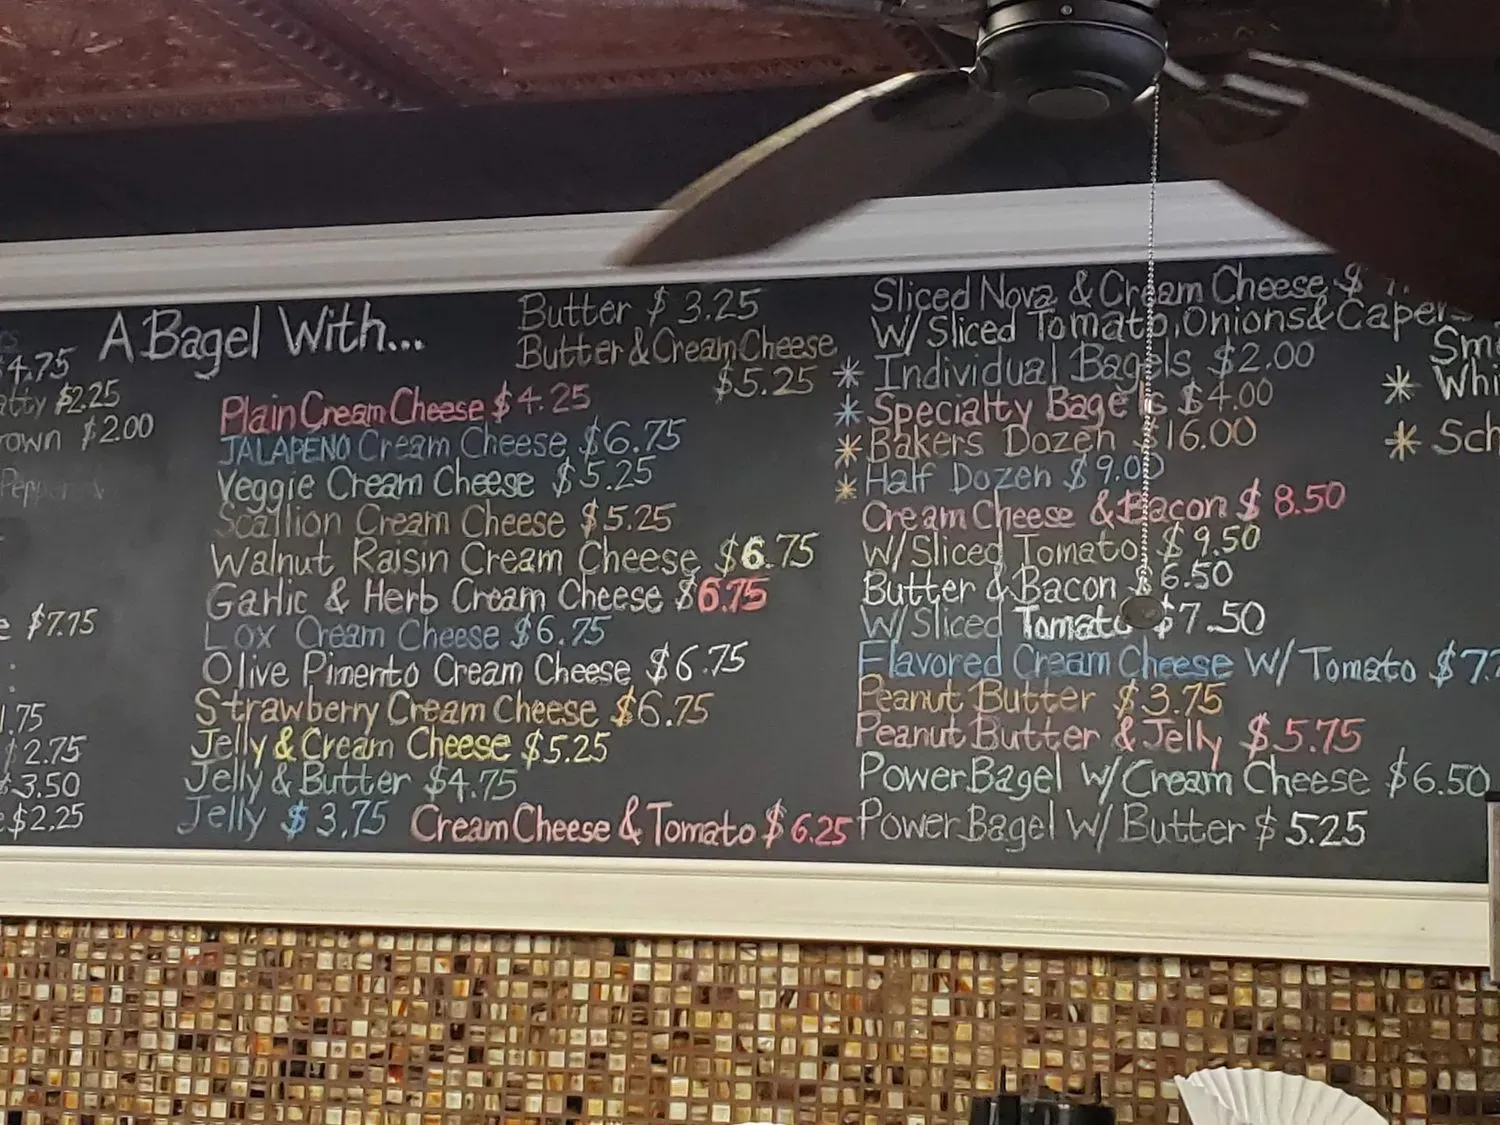 $4.75
$2.25
$2.00
$7.75
1.75
$2.75
$3.50
$2.25
A Bagel With...
Butter $3.25
Butter & Cream Cheese
$5.25
Plain Cream Cheese $4.25
JALAPENO Cream Cheese $6.75
Veggie Cream Cheese $5.25
Scallion Cream Cheese $5.25
Walnut Raisin Cream Cheese $6.75
Garlic & Herb Cream Cheese $6.75
Lox Cream Cheese $6.75
Olive Pimento Cream Cheese $6.75
Strawberry Cream Cheese $6.75
Jelly & Cream Cheese $5.25
Jelly & Butter $4.75
Jelly $3.75 Cream Cheese & Tomato $6.25
Sliced Nova & Cream Cheese $
W/ Sliced Tomato, Onions & Capers
* Individual Bagels $2.00
* Specialty Bagels $4.00
* Bakers Dozen $16.00
* Half Dozen $9.00
Cream Cheese & Bacon $8.50
W/ Sliced Tomato $9.50
Butter & Bacon $6.50
W/ Sliced Tomato $7.50
Flavored Cream Cheese W/ Tomato $7.
Peanut Butter $3.75
Peanut Butter & Jelly $5.75
Power Bagel w/ Cream Cheese $6.50
Power Bagel W/ Butter $5.25
* Whi
* Sch